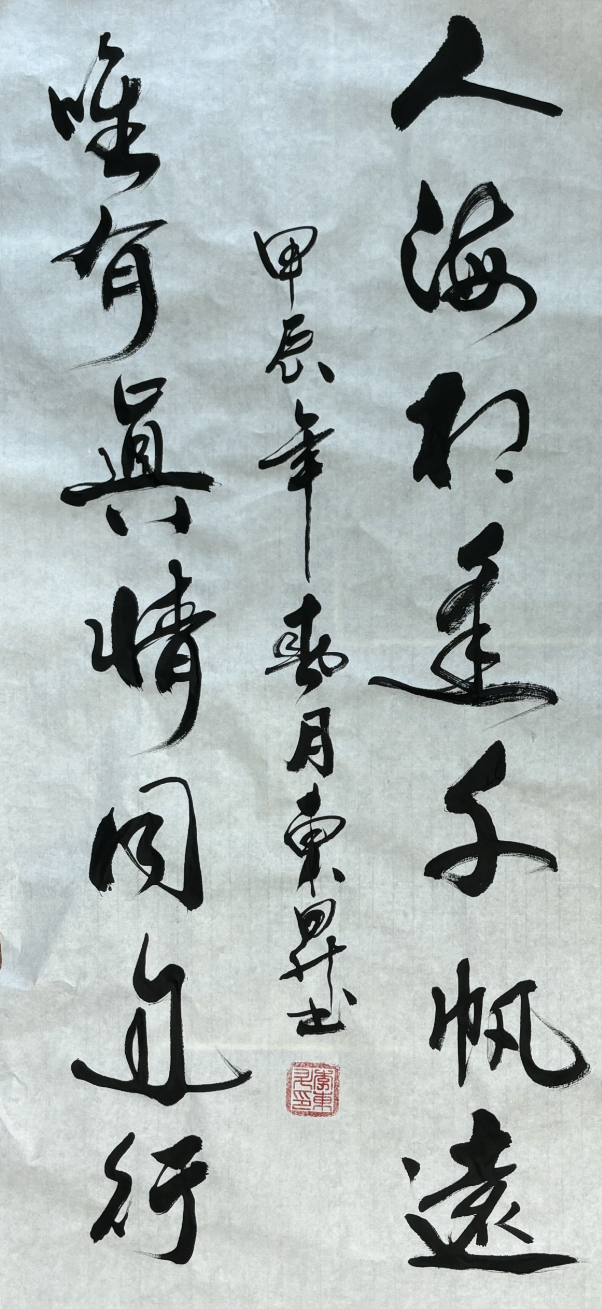 人海相逢千帆遠
唯有真情同道行
甲辰年春月東昇書